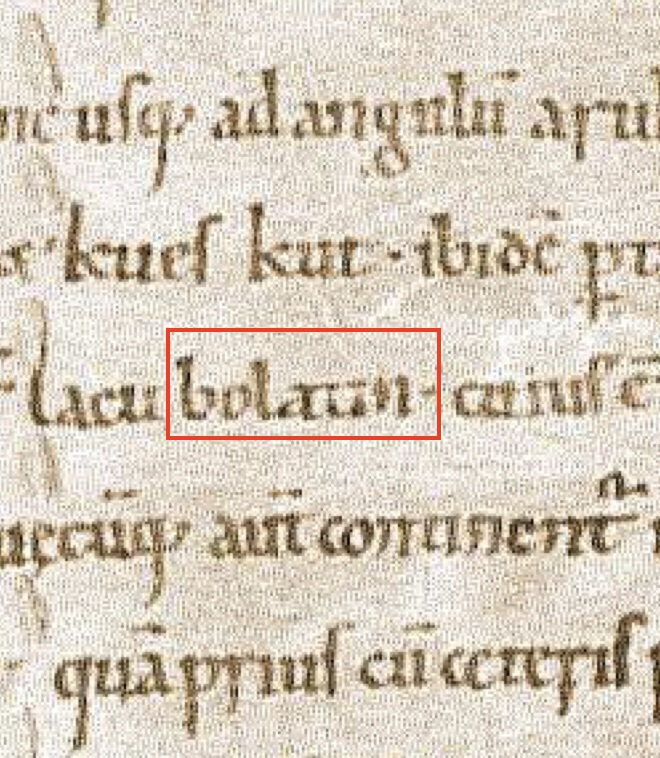 usq; ad angulū aru
kues kut · ibidē
lacu bolatin · cuius ē
uęcūq; aūt continent᷑
quā prius cū ceteris p